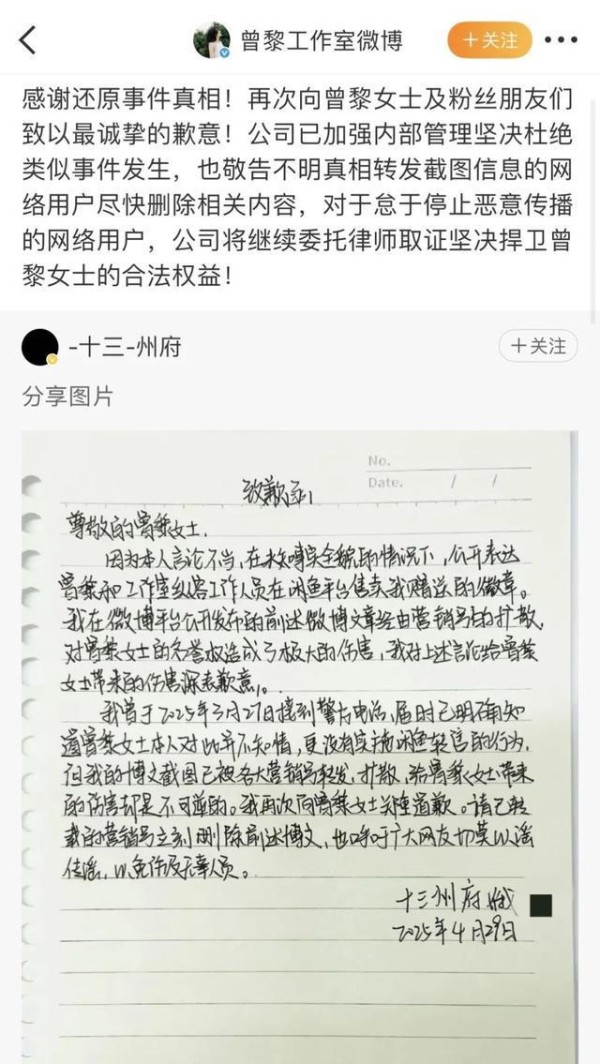 曾黎工作室微博
+关注
感谢还原事件真相！再次向曾黎女士及粉丝朋友们
致以最诚挚的歉意！公司已加强内部管理坚决杜绝
类似事件发生，也敬告不明真相转发截图信息的网
络用户尽快删除相关内容，对于怠于停止恶意传播
的网络用户，公司将继续委托律师取证坚决捍卫曾
黎女士的合法权益！
-十三-州府
+关注
分享图片
No.
Date. / /
致歉函
尊敬的曾黎女士.
因为本人言论不当，在未核实全貌的情况下，公开表达
曾黎和工作室纵容工作人员在闲鱼平台售卖我赠送的徽章。
我在微博平台公开发布的前述微博文章经由营销号的扩散，
对曾黎女士的名誉权造成了极大的伤害，我对上述言论给曾黎
女士带来的伤害深表歉意。
我曾于2025年3月27日接到警方电话，届时已明确知
道曾黎女士本人对此并不知情，更没有实施闲鱼转售的行为，
但我的博文截图已被各大营销号转发，扩散，给曾黎女士带来
的伤害却是不可逆的。我再次向曾黎女士道歉。请已转
载的营销号立刻删除前述博文，也呼吁广大网友切莫以谣
传谣，以免伤及无辜人员。
十三州府
2025年4月29日